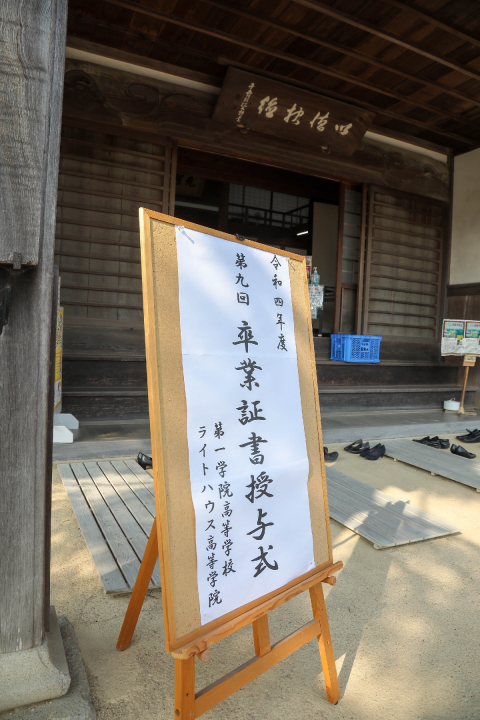 令和四年度
第九回 卒業証書授与式
第一学院高等学校
ライトハウス高等学院